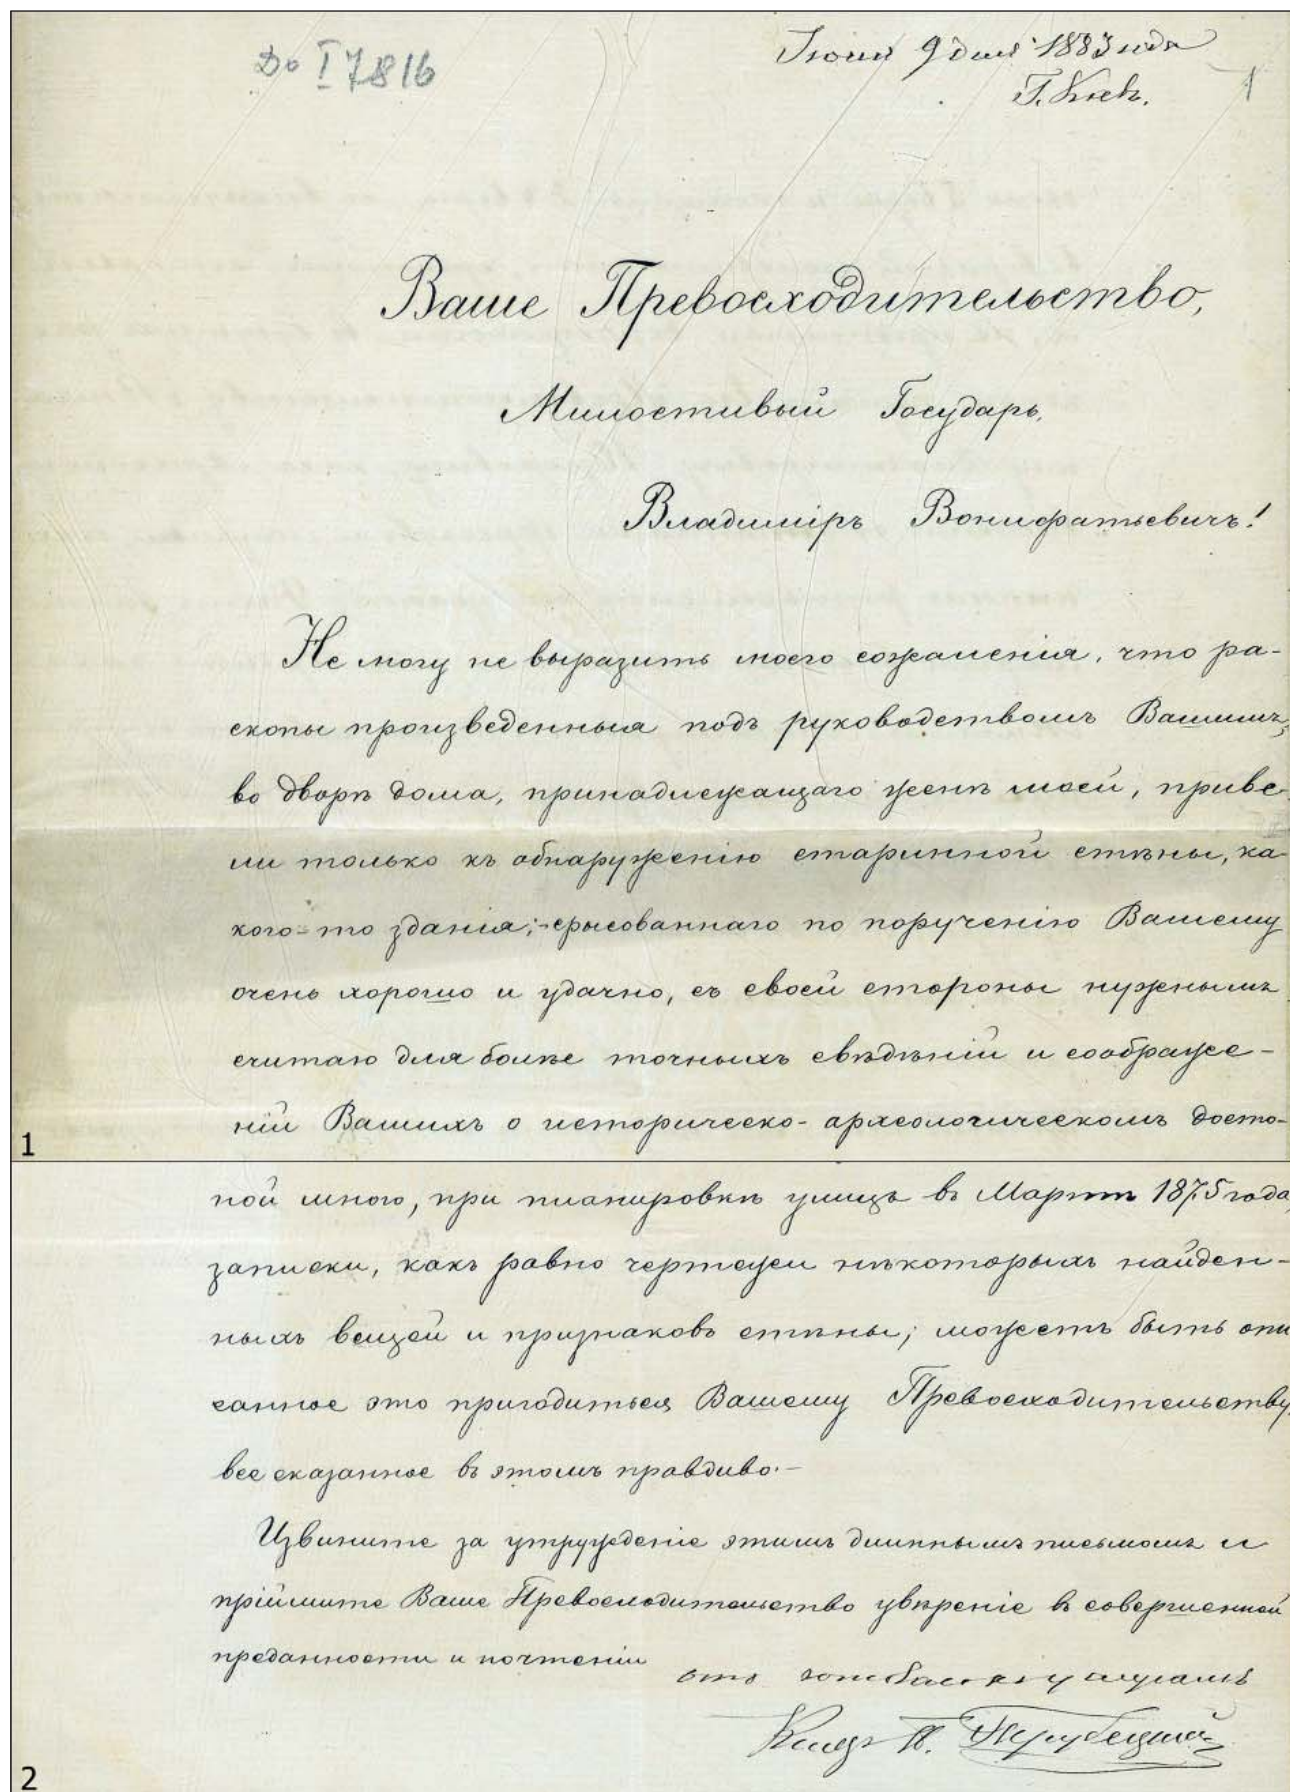 До I 7816
Іюня 9 дня 1883 года
Г. Кіевъ.
1
Ваше Превосходительство,
Милостивый Государь,
Владиміръ Вонифатьевичъ!
Не могу не выразить моего сожаленія, что ра-
скопы произведенныя подъ руководствомъ Вашимъ,
во дворѣ дома, принадлежащаго женѣ моей, приве-
ли только къ обнаруженію старинной стѣны, ка-
кого-то зданія; срысованнаго по порученію Вашему
очень хорошо и удачно, съ своей стороны нужнымъ
считаю для болѣе точныхъ свѣдѣній и соображе-
ній Вашихъ о историческо-археологическомъ досто-
1
ной мною, при планировкѣ улицъ въ Мартѣ 1875 года,
записки, какъ равно чертежи нѣкоторыхъ найден-
ныхъ вещей и признаковъ стѣны; можетъ быть опи
санное это пригодиться Вашему Превосходительству,
все сказанное въ этомъ правдиво.-
Извините за утружденіе этимъ длиннымъ письмомъ и
пріймите Ваше Превосходительство увѣреніе въ совершенной
преданности и почтеніи
отъ готоваго къ услугамъ
Князь П. Трубецкой
2